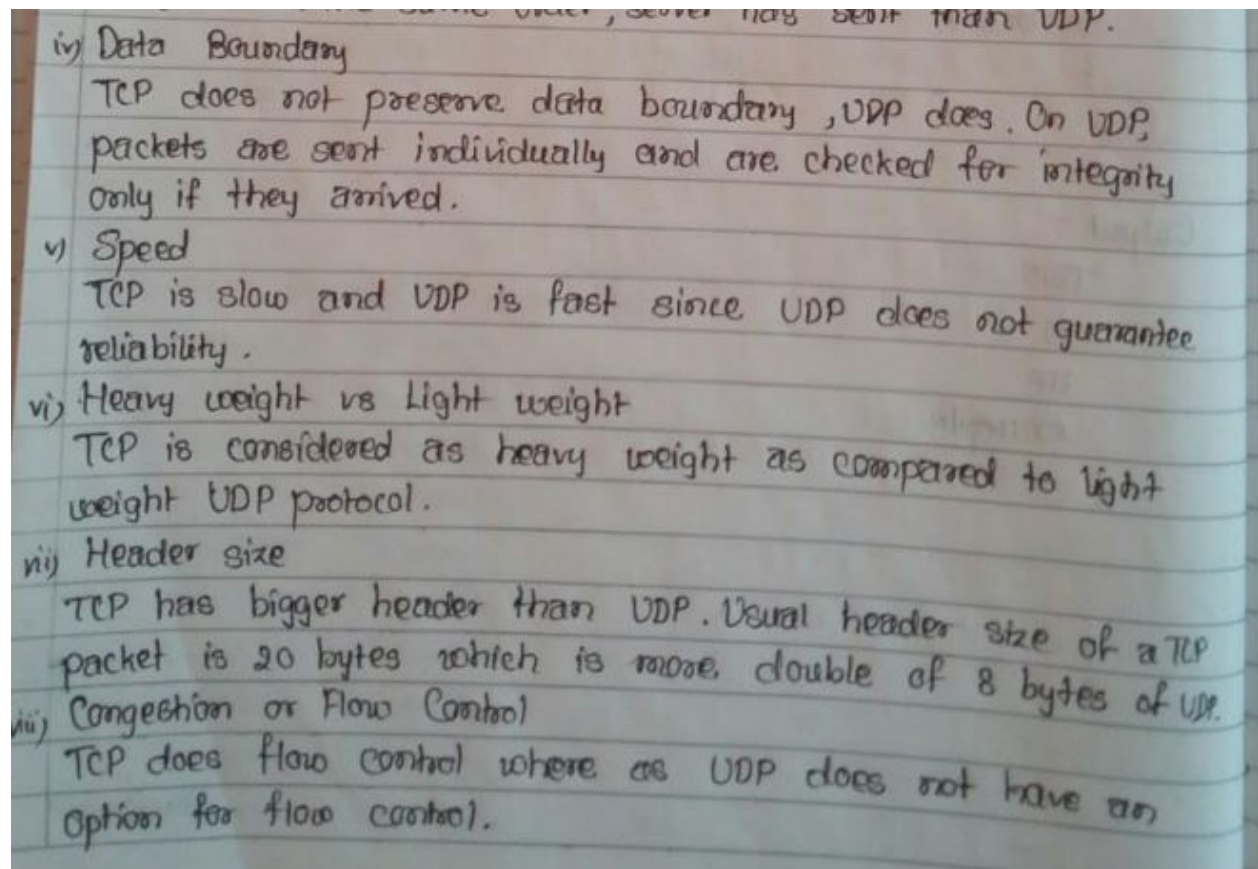 order, server has sent than UDP.
iv) Data Boundary
TCP does not preserve data boundary, UDP does. On UDP,
packets are sent individually and are checked for integrity
only if they arrived.
v) Speed
TCP is slow and UDP is fast since UDP does not guarantee
reliability.
vi) Heavy weight vs Light weight
TCP is considered as heavy weight as compared to light
weight UDP protocol.
vii) Header size
TCP has bigger header than UDP. Usual header size of a TCP
packet is 20 bytes which is more double of 8 bytes of UDP.
viii) Congestion or Flow Control
TCP does flow control where as UDP does not have an
option for flow control.